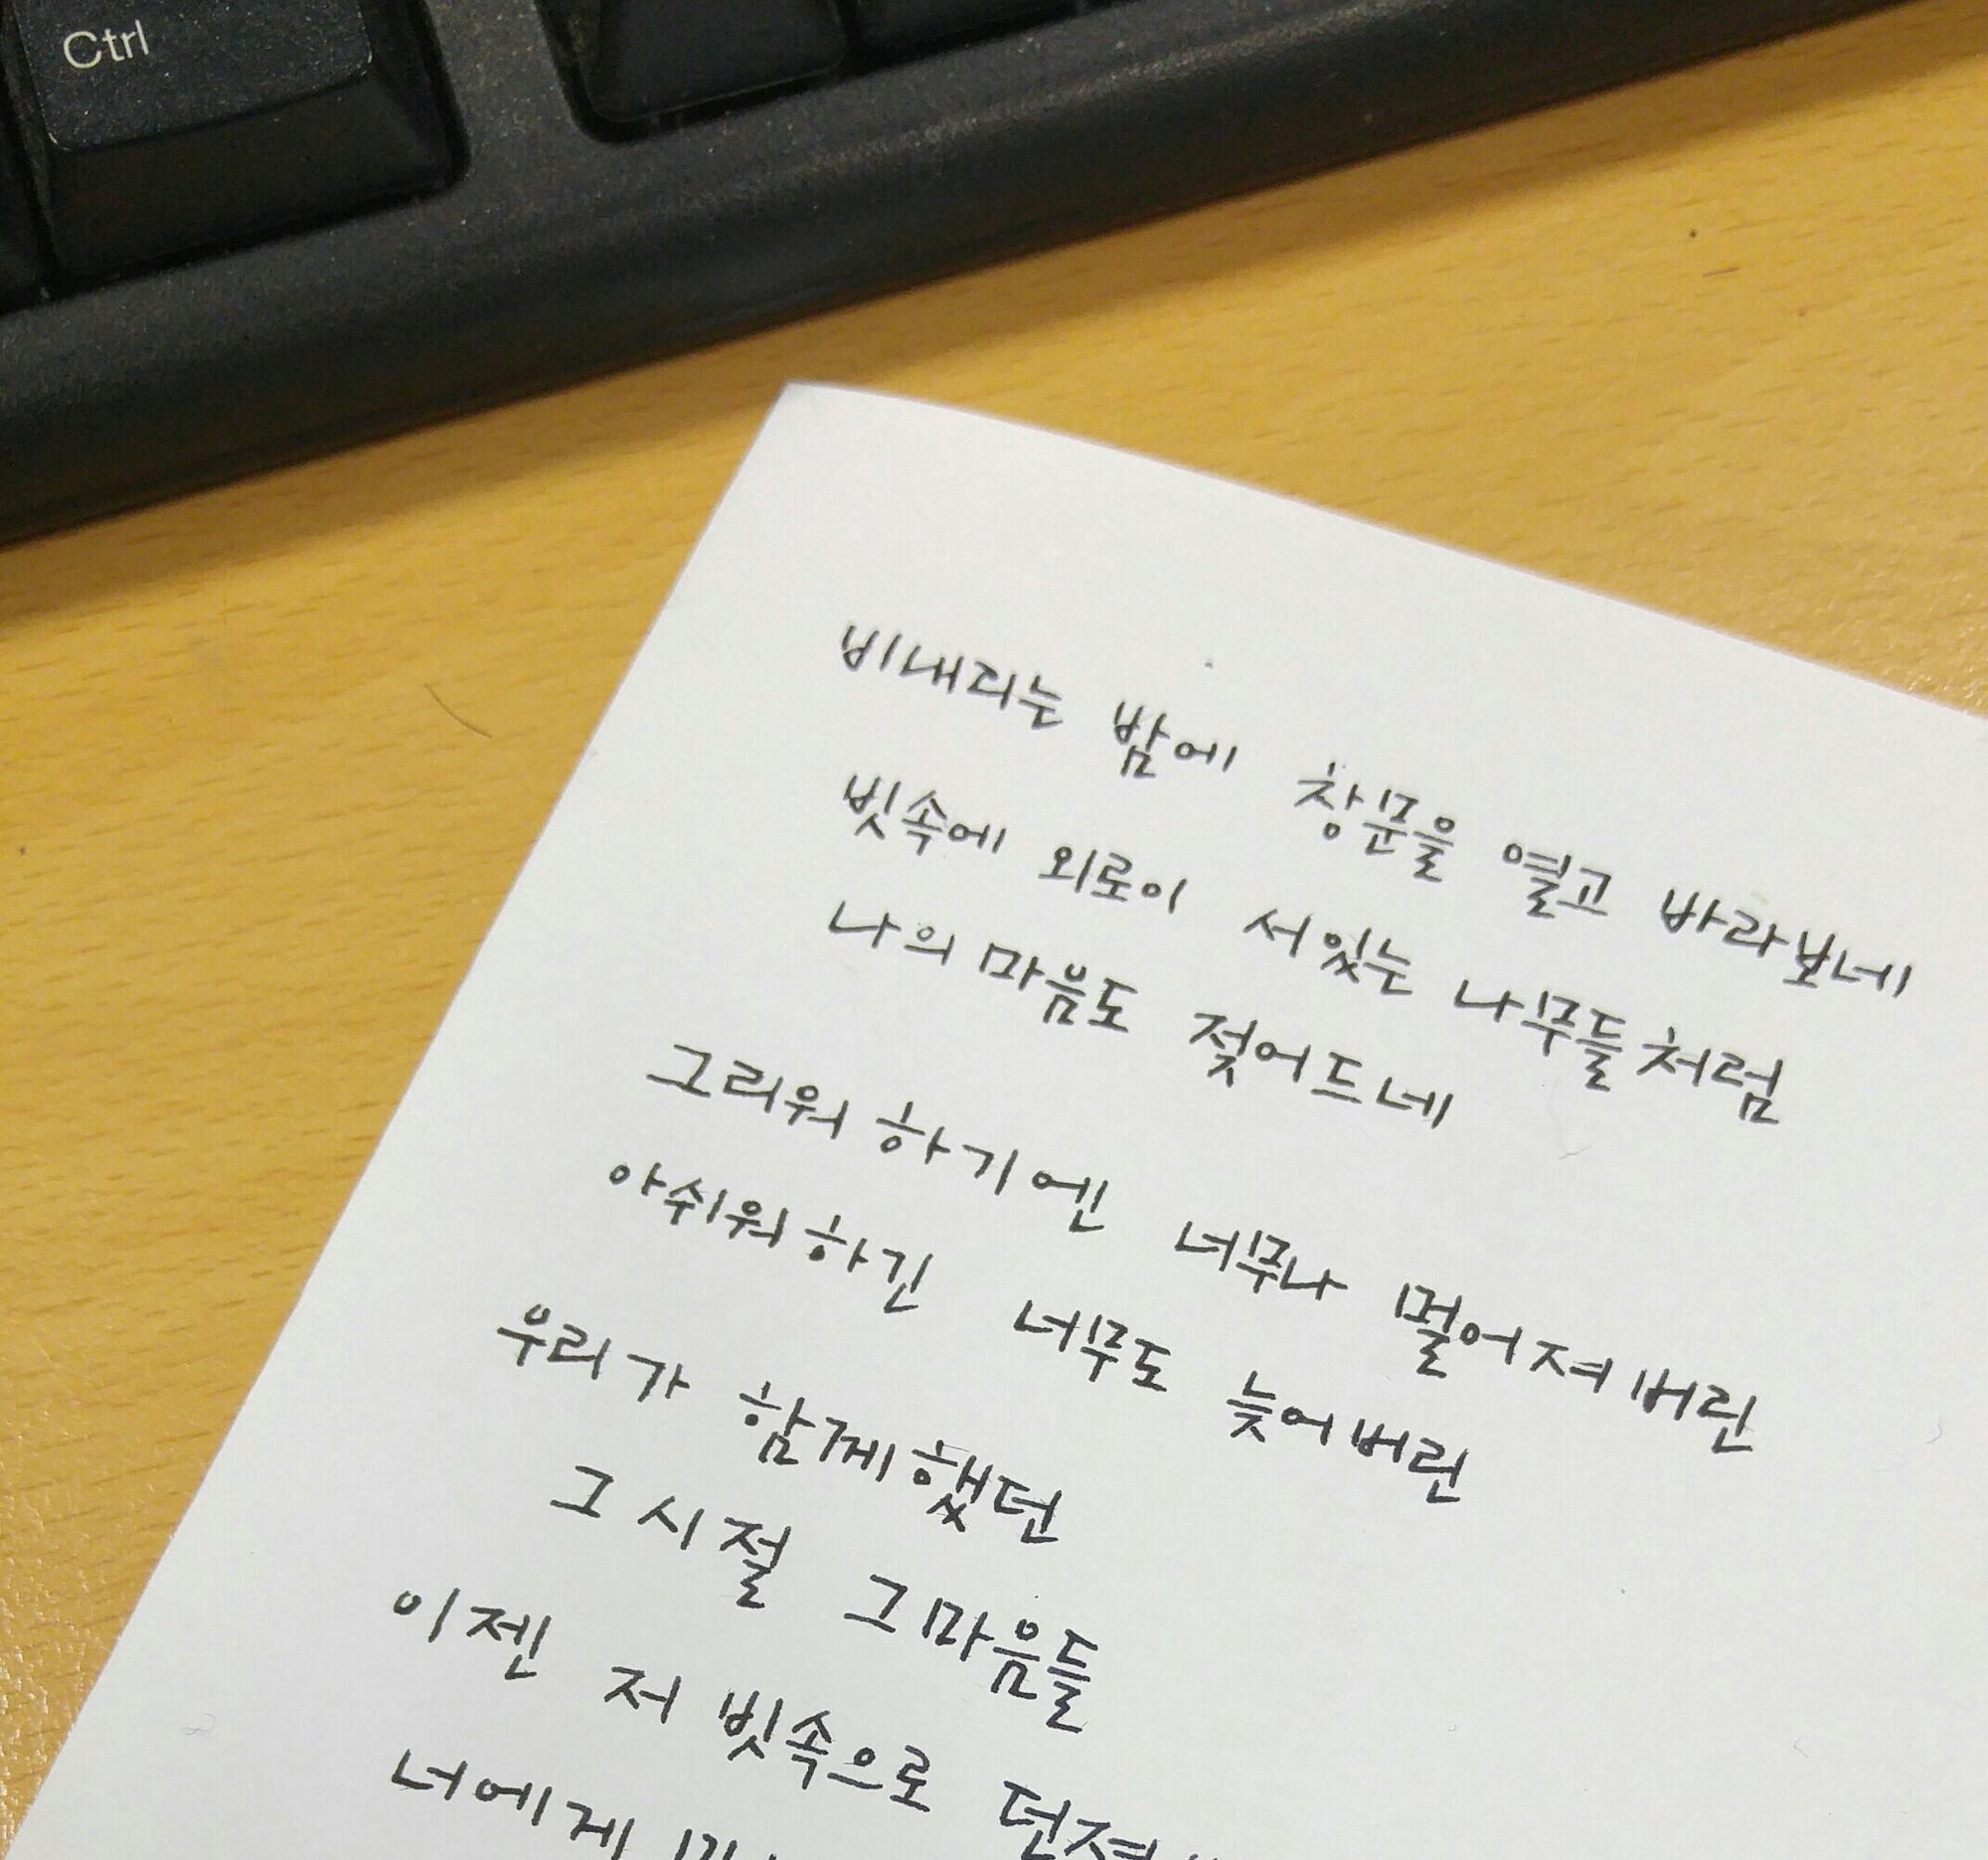 Ctrl
비내리는 밤에 창문을 열고 바라보네
빗속에 외로이 서있는 나무들처럼
나의 마음도 젖어드네
그리워 하기엔 너무나 멀어져버린
아쉬워하긴 너무도 늦어버린
우리가 함께했던
그 시절 그 마음들
이젠 저 빗속으로 던져
너에게